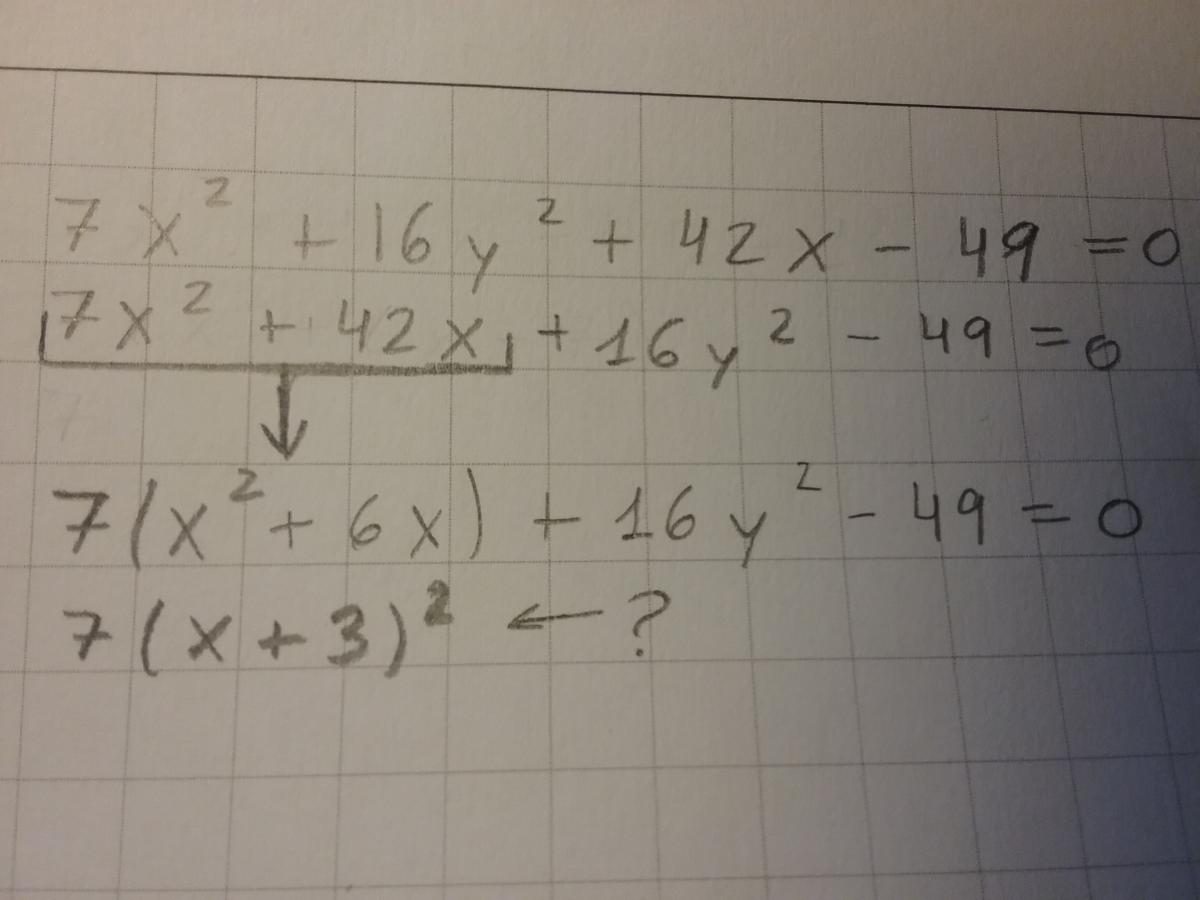 7x² + 16y² + 42x - 49 = 0
7x² + 42x + 16y² - 49 = 0
7(x² + 6x) + 16y² - 49 = 0
7(x + 3)² ← ?